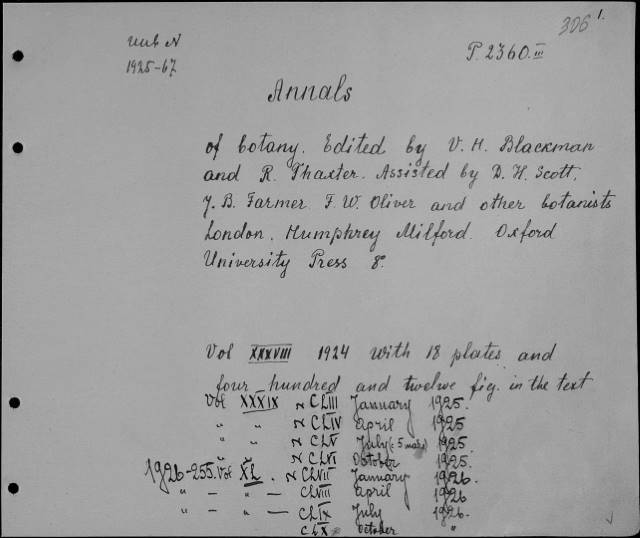 306 1.
инв N P. 2360.III
1925-67
Annals
of botany. Edited by V. H. Blackman
and R. Thaxter. Assisted by D. H. Scott,
J. B. Farmer F. W. Oliver and other botanists
London. Humphrey Milford. Oxford
University Press 8°.
Vol XXXVIII 1924 with 18 plates and
four hundred and twelve fig. in the text
Vol XXXIX N CLIII January 1925.
" " N CLIV april 1925
" " N CLV July 1925
" N CLVI October 1925.
1926-255. Vol XL. N CLVII January 1926.
" — " — CLVIII april 1926
" — " — CLIX July 1926.
CLX October "